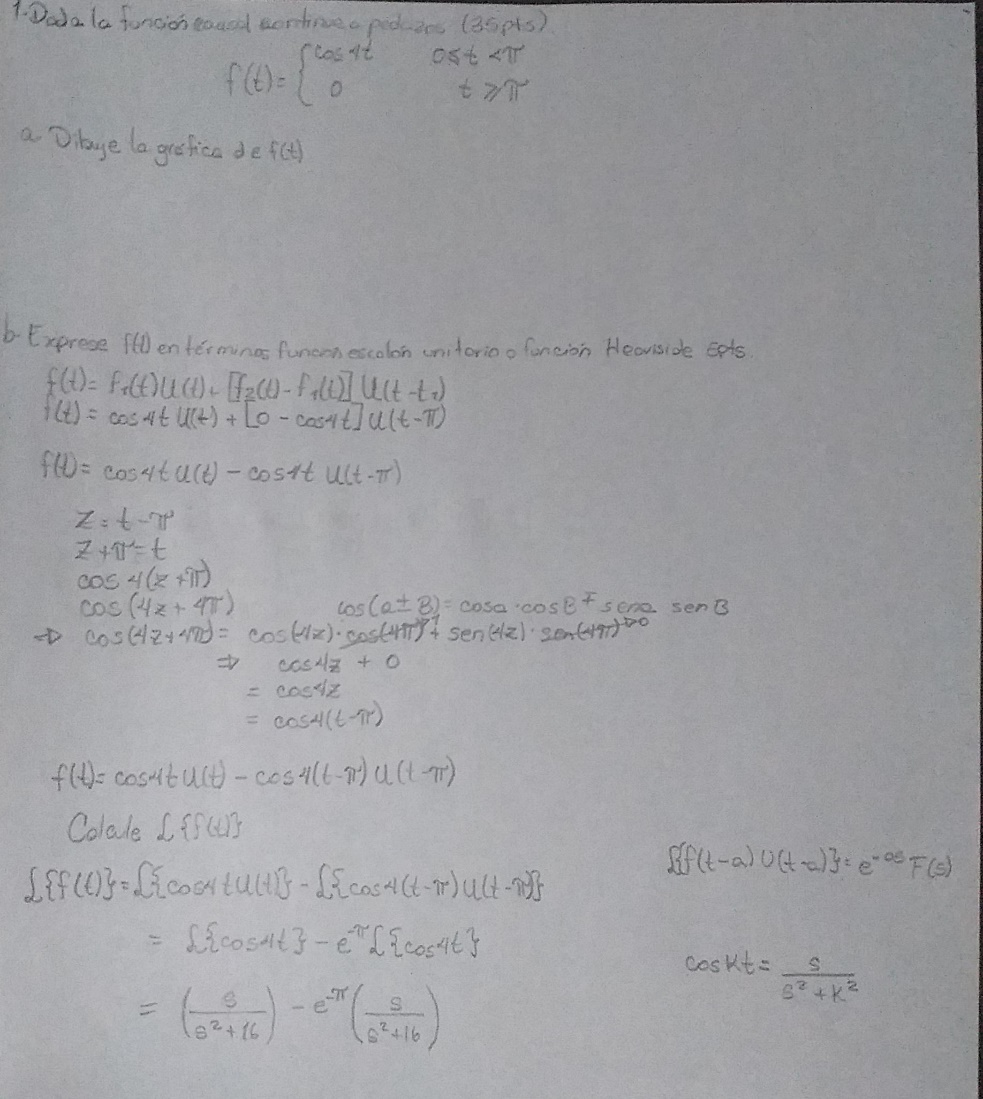 1-Dada la función causal continua a pedazos (35pts)
f(t) = { cos4t 0≤t<π
0 t≥π
a- Dibuje la grafica de f(t)
b- Exprese f(t) en términos funcion escalón unitario o función Heaviside 5pts.
f(t) = f₁(t)U(t) + [f₂(t) - f₁(t)] U(t-t₁)
f(t) = cos4t U(t) + [0 - cos4t] U(t-π)
f(t) = cos4t U(t) - cos4t U(t-π)
Z = t-π
Z+π = t
cos 4(z+π)
cos (4z + 4π) cos(a ± B) = cosa · cosB ∓ sena senB
⇒ cos(4z+4π) = cos(4z)·cos(4π)¹ + sen(4z)·sen(4π)⁰
⇒ cos4z + 0
= cos4z
= cos4(t-π)
f(t) = cos4t U(t) - cos4(t-π) U(t-π)
Calcule ℒ{f(t)}
ℒ{f(t-a) U(t-a)} = e^-as F(s)
ℒ{f(t)} = ℒ{cos4t U(t)} - ℒ{cos4(t-π) U(t-π)}
= ℒ{cos4t} - e^-π ℒ{cos4t}
cosKt = s/(s²+K²)
= (s/(s²+16)) - e^-π (s/(s²+16))